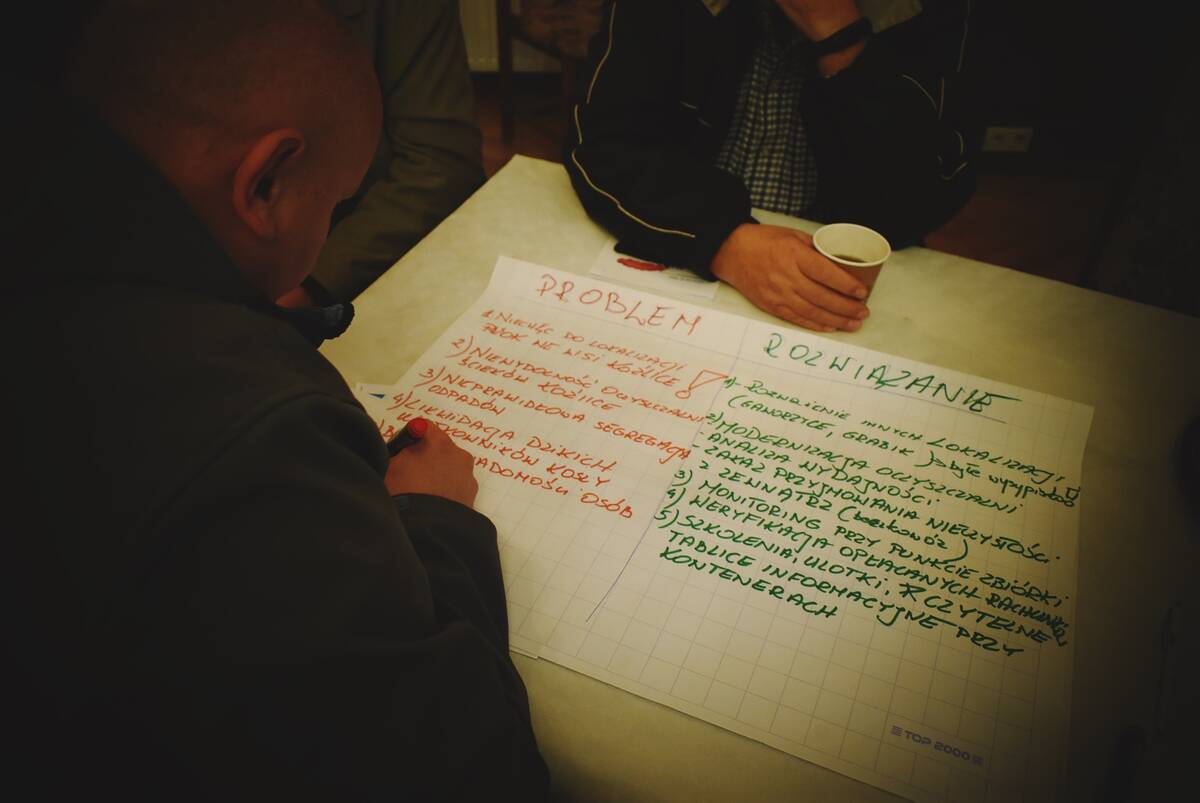 PROBLEM
1. NIECHĘC DO LOKALIZACJI
PSZOK WE WSI KOŹLICE !
2) NIEWYDOLNOŚCI OCZYSZCZALNI
ŚCIEKÓW KOŹLICE
3) NIEPRAWIDŁOWA SEGREGACJA
ODPADÓW
4) LIKWIDACJA DZIKICH
KOWNIKÓW KOSŁY
ADOMOŚCI OSÓB
ROZWIĄZANIE
1) ROZWAŻENIE INNYCH LOKALIZACJI !
(GAWORZYCE, GRABIK) byłe wysypisko
2) MODERNIZACJA OCZYSZCZALNI
- ANALIZA WYDAJNOŚCI
- ZAKAZ PRZYJMOWANIA NIECZYSTOŚCI
Z ZEWNĄTRZ (beczkowóz)
3) MONITORING PRZY PUNKCIE ZBIÓRKI
4) WERYFIKACJA OPŁACANYCH RACHUNKÓW
5) SZKOLENIA, ULOTKI, CZYTELNE
TABLICE INFORMACYJNE PRZY
KONTENERACH
TOP 2000